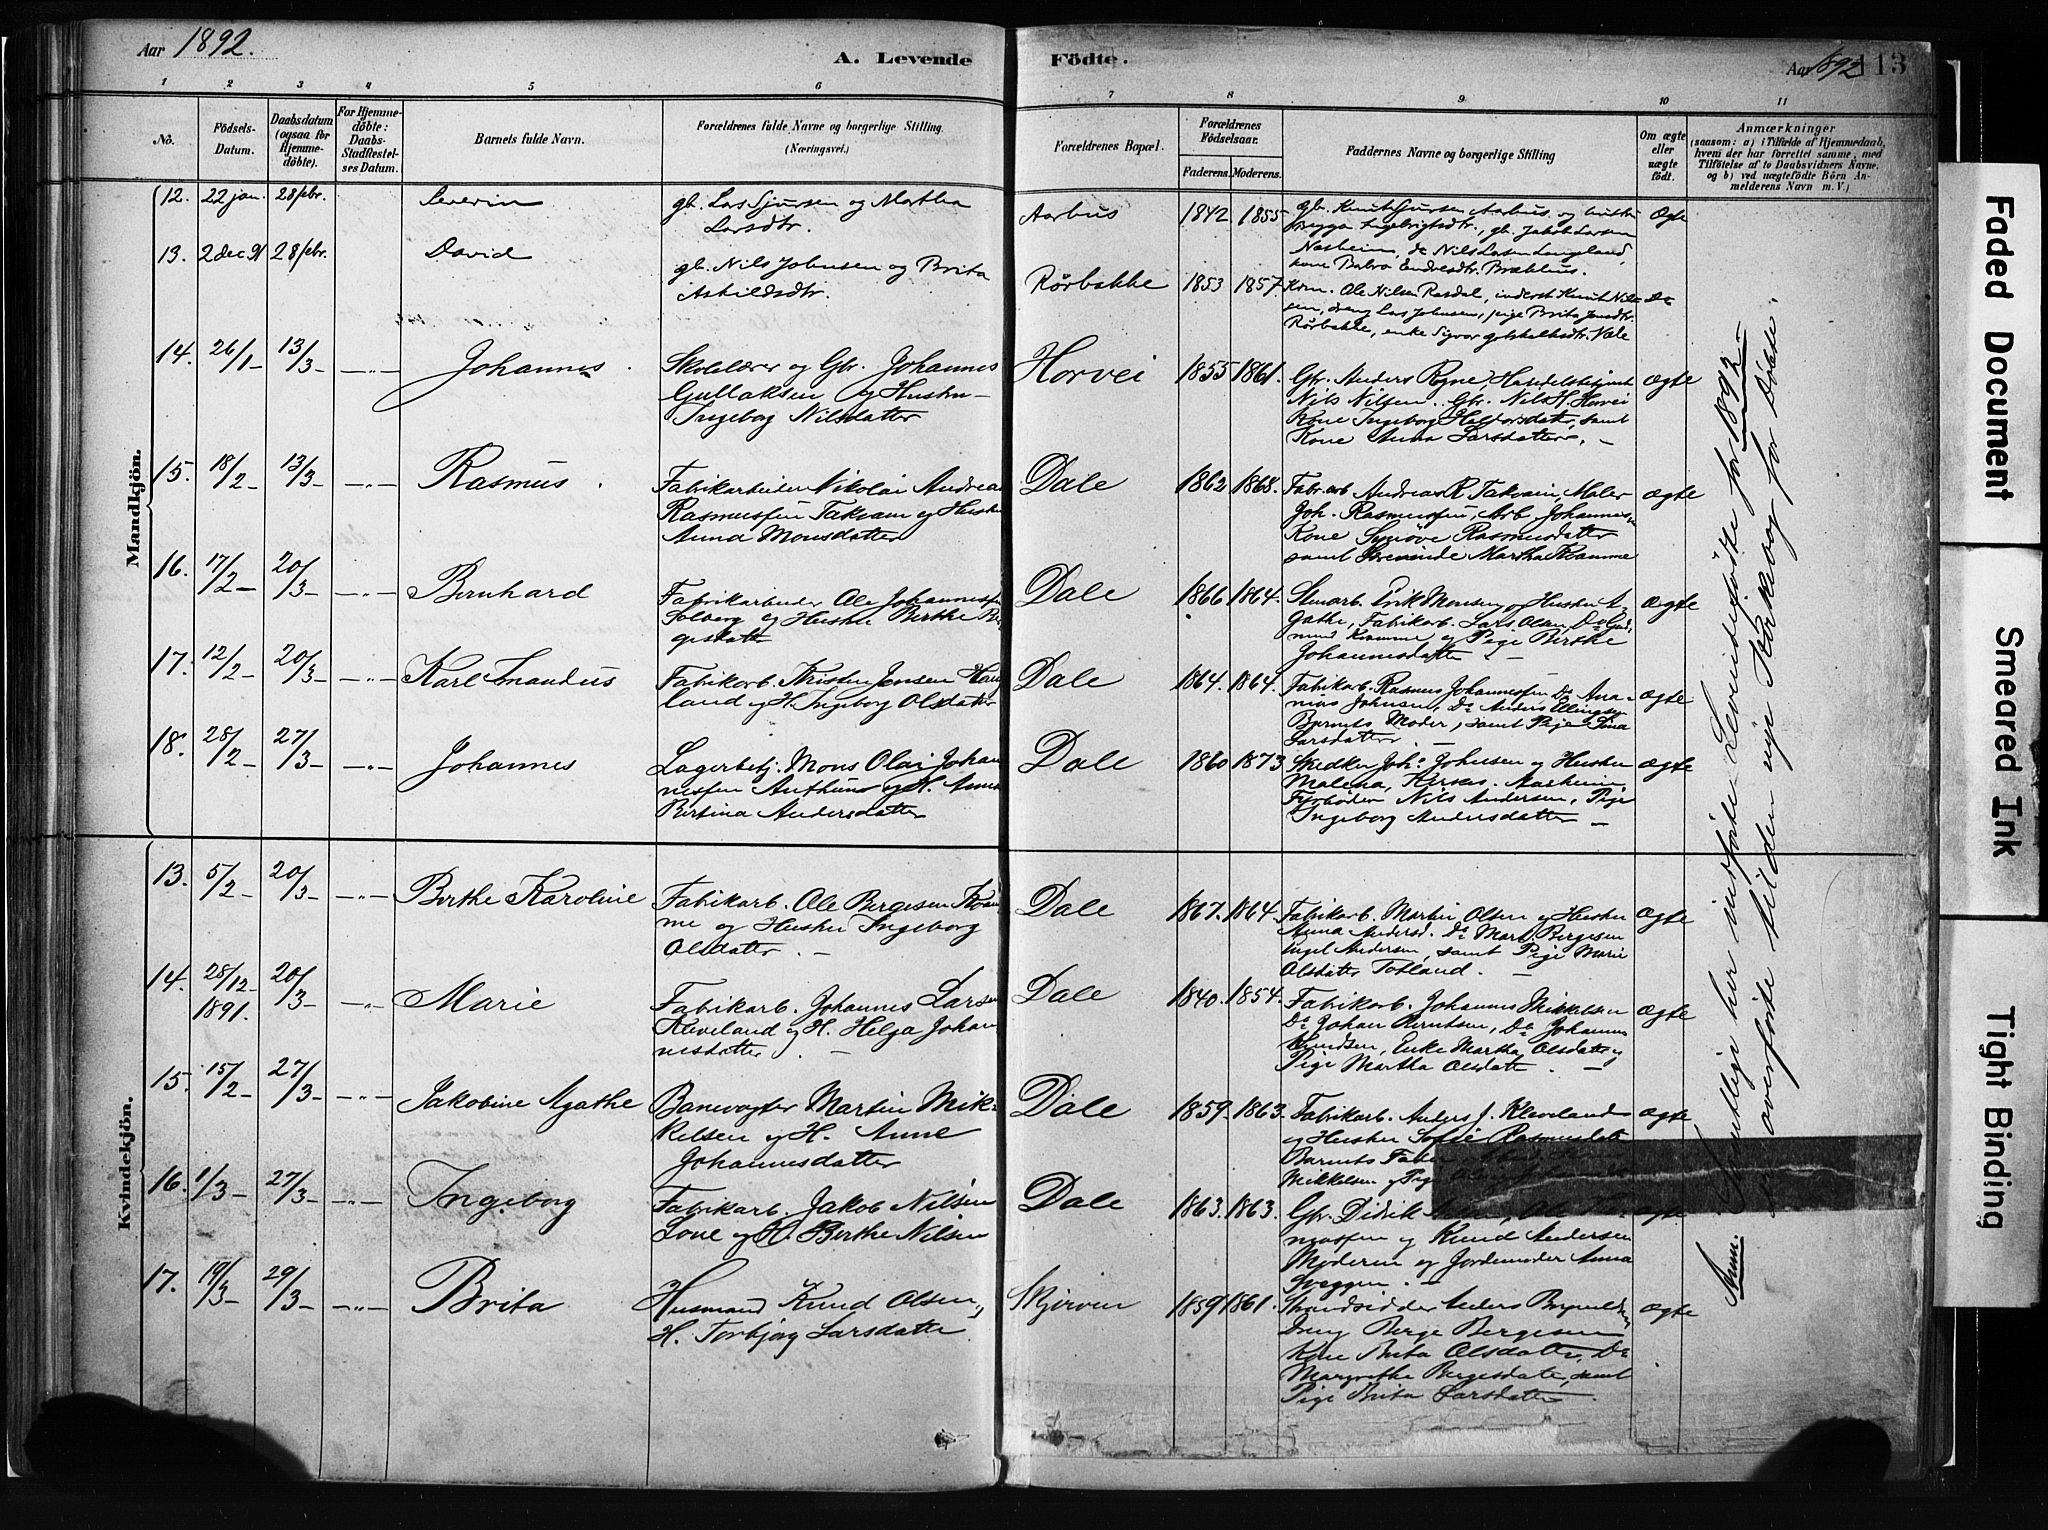 Aar 1892.
A. Levende
Födte.
Aar 1892
113
1 2 3 4 5 6
7 8 9 10 11
No.
Födsels-
Datum.
Daabsdatum
(ogsaa for
Hjemme-
döbte).
For Hjemme-
döbte:
Daabs-
Stadfæstel-
ses Datum.
Barnets fulde Navn.
Forældrenes fulde Navne og borgerlige Stilling.
(Næringsvei.)
Forældrenes Bopæl.
Forældrenes
Födselsaar.
Faderens. Moderens.
Faddernes Navne og borgerlige Stilling
Om ægte
eller
uægte
födt.
Anmærkninger
(saasom: a) i Tilfælde af Hjemmedaab,
hvem der har forrettet samme, med
Tilföielse af to Daabsvidners Navne,
og b) ved uægtefödte Börn An-
melderens Navn m. V.)
Mandkjön.
12. 22 jan. 28 febr. Severin
gb. Lars Sjursen og Martha
Larsdtr.
Aarhus 1842 1855
gbr. Knut Sjursen Aarhus og hustru
Ingebrigtsdtr., gb. Jakob Larsen
Næsheim, do Nils Larsen Langeland,
kone Babro Endresdtr. Brækhus.
Ægte
13. 2 dec 91 28 febr. David
gb. Nils Johnsen og Brita
Askildsdtr.
Rørbakke 1853 1857.
Ole Nilsen Rasdal, inderst Knut Nil-
sen, dreng Lars Johnsen, pige Brita
Rørbakke, enke Sigvor
Do
14. 26/1 13/3 Johannes
Skolelærer og Gbr. Johannes
Gullaksen og Hustru
Ingeborg Nilsdatter
Horvei 1855 1861.
Gbr. Anders Rogne, Handelsbetjent
Nils Nilsen, Gbr. Nils H. Horvei
Kone Ingeborg samt
Kone Anna Larsdatter. –
ægte
15. 18/2 13/3 Rasmus
Fabrikarbeider Nikolai Andreas
Rasmussen Takvam og Hustru
Anna Monsdatter
Dale 1862 1868.
Fabr. arb Andreas R. Takvam, Maler
Joh. Rasmussen, Arb. Johannes
Kone Synøve Rasmusdatter
samt Martha Kvamme
ægte
16. 17/2 20/3 Bernhard
Fabrikarbeider Ole Johannessen
Solberg og Hustru Berthe Ber-
gesdatter
Dale 1866 1864.
Stenarb. Erik Monsen og Hustru A-
gathe, Fabrikarb. Lars Olsen, Do Gud-
mund Kvamme og Pige Berthe
Johannesdatter –
ægte
17. 12/2 20/3 Karl Imandus
Fabrikarb. Kristen Jensen
land og H. Ingeborg Olsdatter
Dale 1864. 1864.
Fabrikarb. Rasmus Johannessen Do Ana-
nias Johnsen, Do Anders Ellingsen
Barnets Moder, samt Pige Lina
Larsdatter –
ægte
18. 28/2 27/3 Johannes
Lagerbetj. Mons Olai Johan-
nessen og H. Anna
Bertina Andersdatter
Dale 1860 1873
Joh. Johnsen og Hustru
Malena,
Fyrbøder Nils Andersen, Pige
Ingeborg Andersdatter –
ægte
Kvindekjön.
13. 5/2 20/3 Berthe Karoline
Fabrikarb. Ole Bergesen Kvam-
me og Hustru Ingeborg
Olsdatter. –
Dale 1867. 1864.
Fabrikarb. Martin Olsen og Hustru
Anna Andersd. Do Mart. Bergesen
Andersen, samt Pige Marie
Olsdatter Totland. –
ægte
14. 28/12 1891. 20/3 Marie
Fabrikarb. Johannes Larsen
Kleveland og H. Helga Johan-
nesdatter. –
Dale 1840. 1854.
Fabrikarb. Johannes Mikkelsen
Do Johan Berntsen, Do Johannes
Knudsen, Enke Martha Olsdatter og
Pige Martha Olsdatter. –
ægte
15. 15/2 27/3 Jakobine Agathe
Banevogter Martin Mik-
kelsen og H. Anne
Johannesdatter
Dale 1859. 1863.
Fabrikarb. Anders J. Kleveland
og Hustru Sofie Rasmusdatter
Barnets Fader
Mikkelsen og Pige
ægte
16. 1/3 27/3 Ingeborg
Fabrikarb. Jakob Nilsen
Lone og H. Berthe Nilsen
Dale 1863. 1863.
Gbr. Didrik
og Knud Andersen
Moderen og Jordemoder Anna
–
ægte.
17. 19/3 29/3 Brita
Husmand Knud Olsen,
H. Torbjørg Larsdatter
Skjerven 1859 1861.
Strandsidder Anders
Dreng Berge Bergesen
Kone Brita Olsdatter, Do
Margrethe Bergesdatter, samt
Pige Brita Larsdatter.
ægte
Anm. Samtlige her indførte Levendefødte for 1892
er overførte til den nye Kirkebog for Døbte.
Faded Document
Smeared Ink
Tight Binding